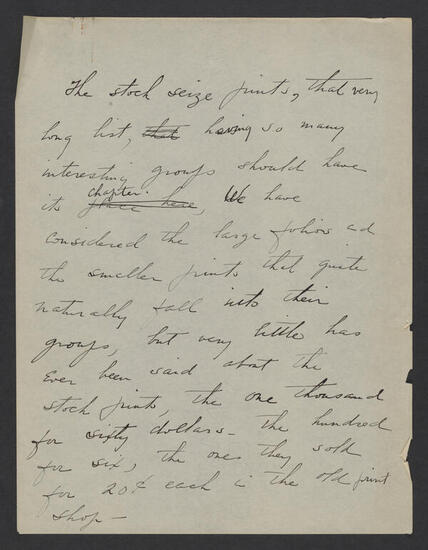 The stock seize prints, that very
long list, that having so many
interesting groups should have
its place here, chapter. We have
considered the large folios ad
the smaller prints that quite
naturally fall into their
groups, but very little has
Ever been said about the
stock prints, the one thousand
for sixty dollars – the hundred
for six, the ones they sold
for 20¢ each in the old print
shop –